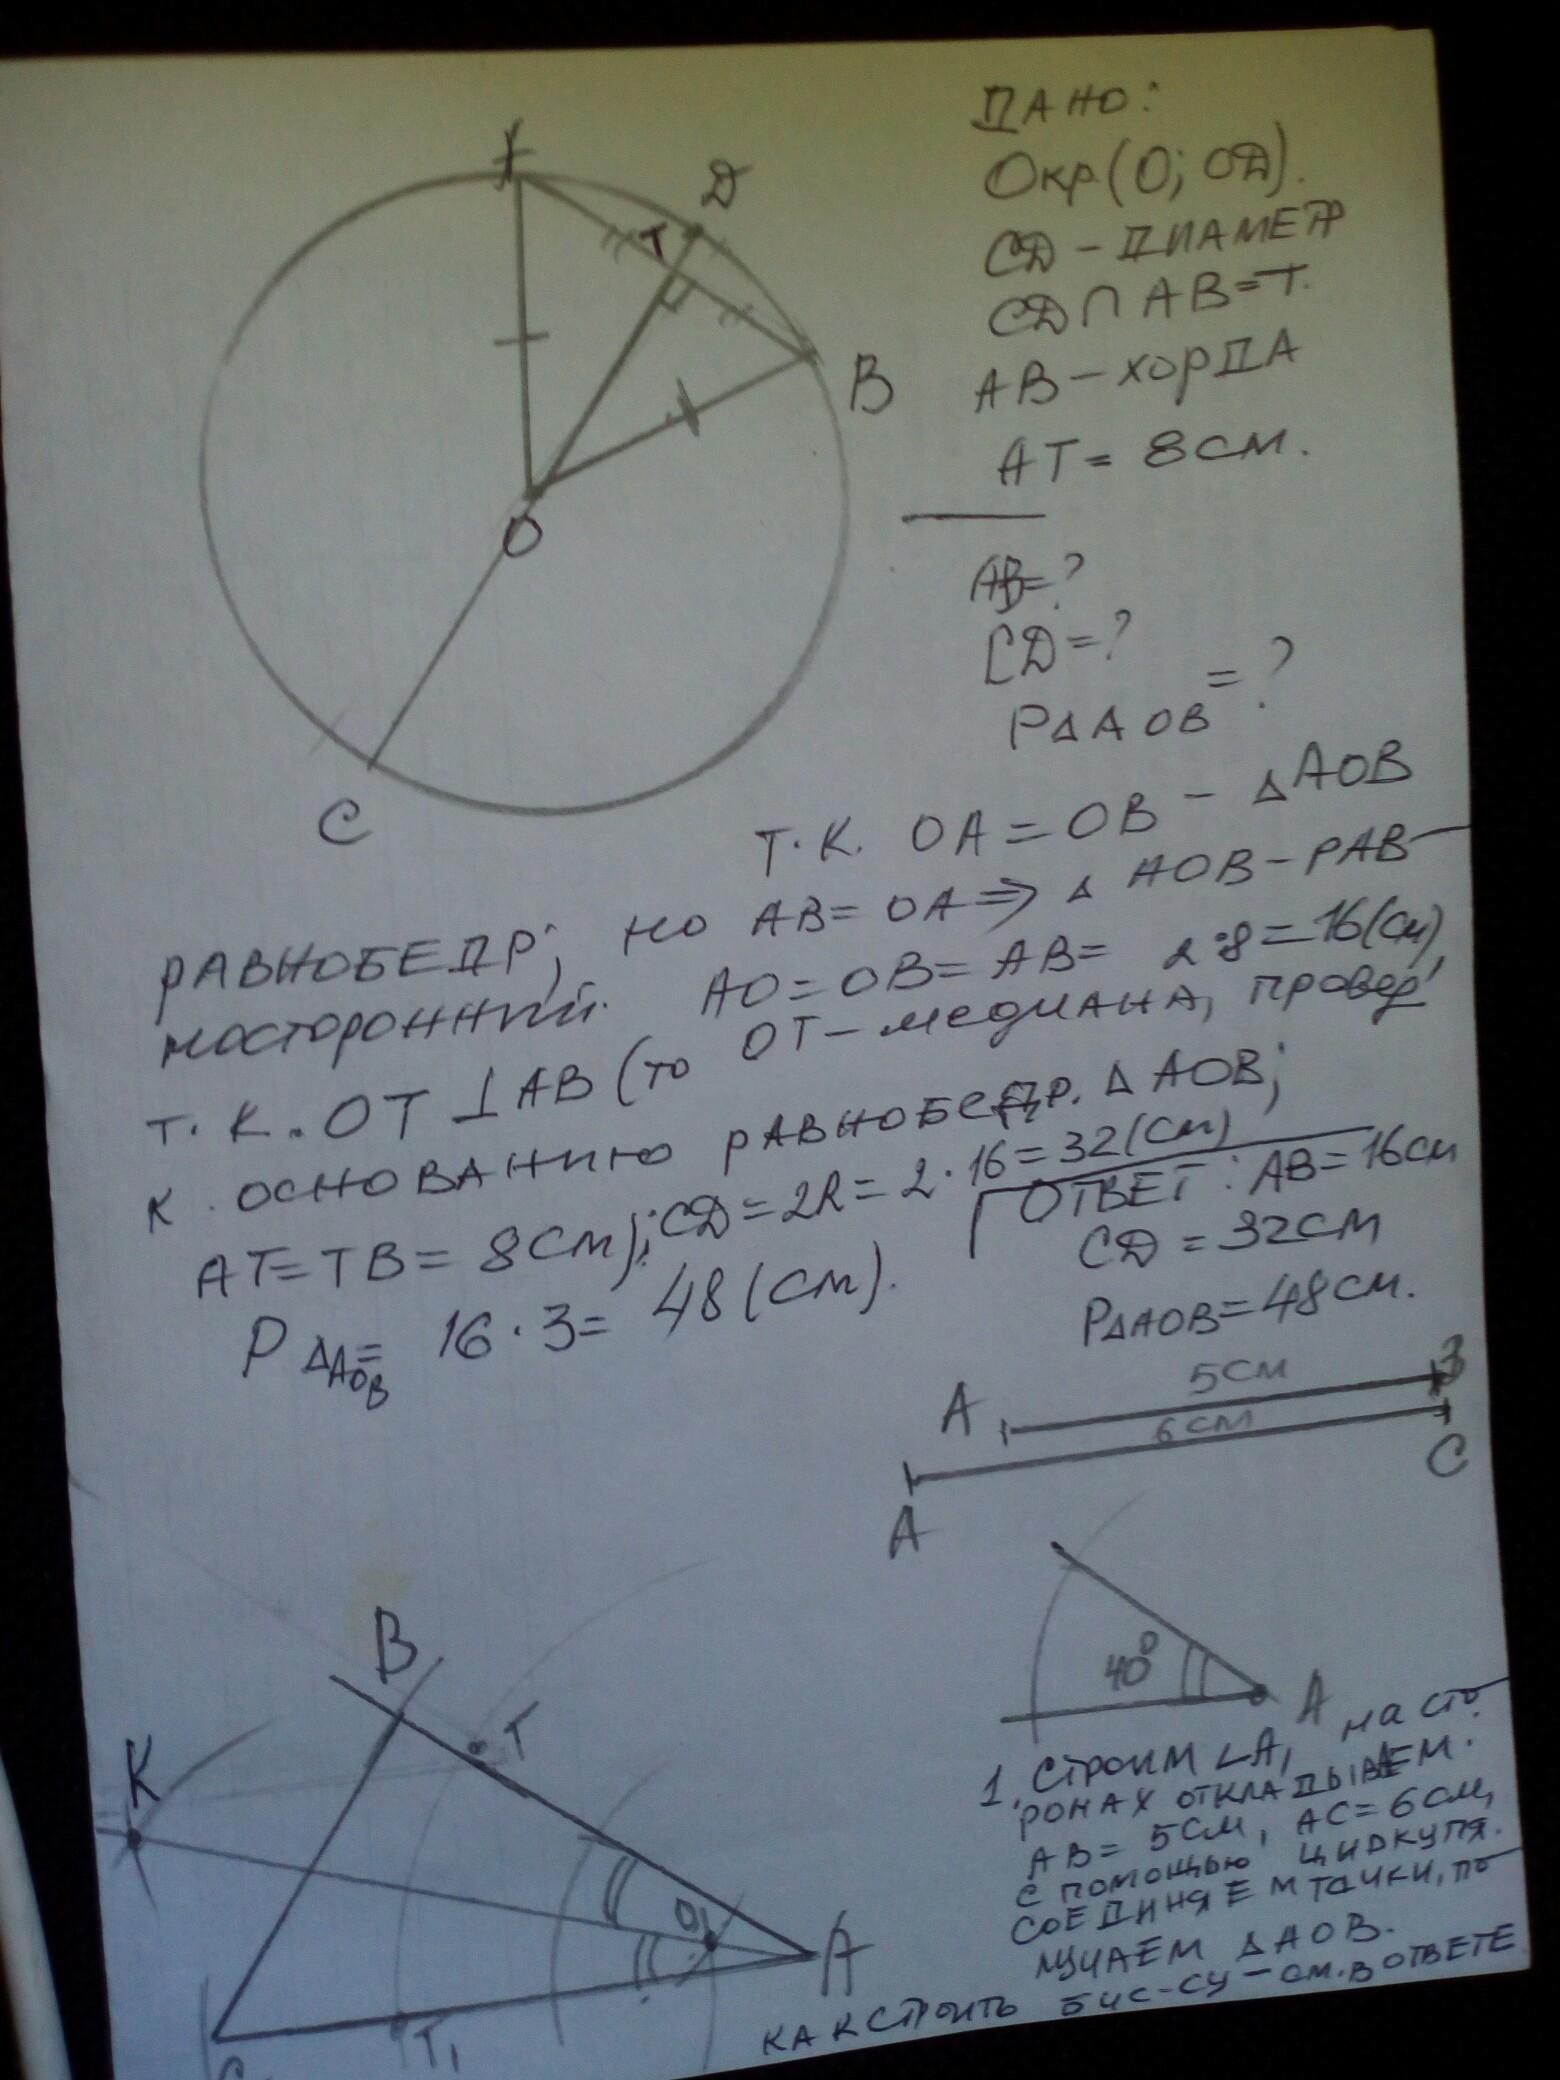 D
T
B
O
C
ДАНО:
Окр(О; ОД).
CD – ДИАМЕТР
CD ∩ AB = T.
AB – ХОРДА
AT = 8 см.
AB = ?
CD = ?
P△AOB = ?
Т.К. OA = OB – △AOB
РАВНОБЕДР; НО AB = OA ⇒ △ AOB – РАВ–
НОСТОРОННИЙ. AO = OB = AB = 2·8 = 16(см),
Т.К. OT ⊥ AB (то OT – медиана, провед
К. ОСНОВАНИЮ РАВНОБЕДР. △ AOB;
AT = TB = 8 см); CD = 2R = 2·16 = 32 (см)
P△AOB = 16·3 = 48 (см).
ОТВЕТ: AB = 16 см
CD = 32 см
P△AOB = 48 см.
A 5 см B
6 см
A C
40° A
B
T
K
O1
A
T1
C
1. Строим ∠A, на сто–
ронах откладываем.
AB = 5 см, AC = 6 см,
с помощью циркуля.
соединяем точки, по–
лучаем △ AOB.
как строить бис-су – см. в ответе